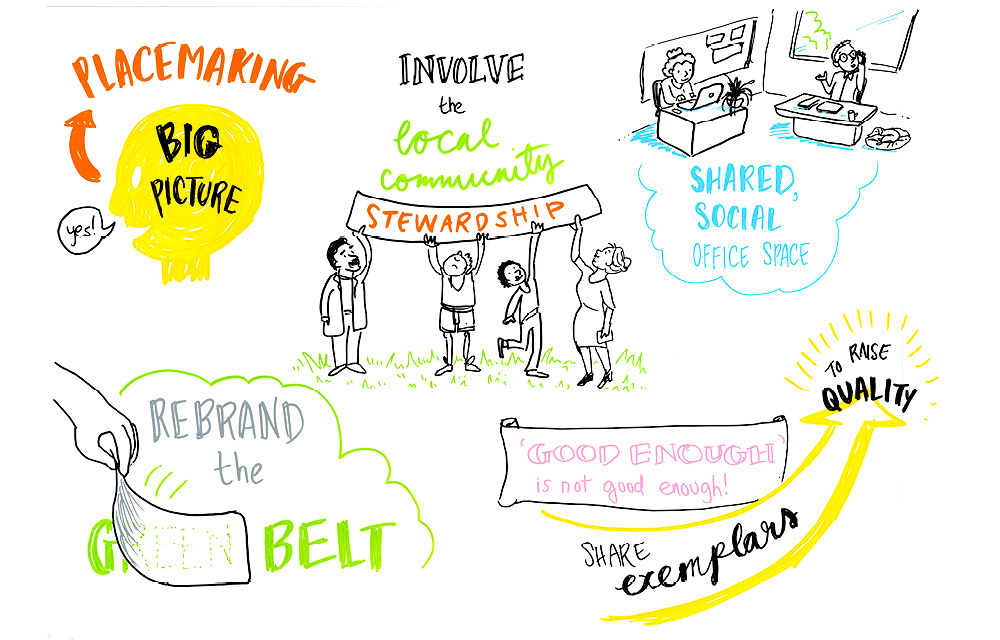 PLACEMAKING
BIG
PICTURE
yes!
INVOLVE
the
local
community
STEWARDSHIP
SHARED,
SOCIAL
OFFICE SPACE
REBRAND
the
GREEN BELT
'GOOD ENOUGH'
is not good enough!
SHARE
exemplars
TO RAISE
QUALITY